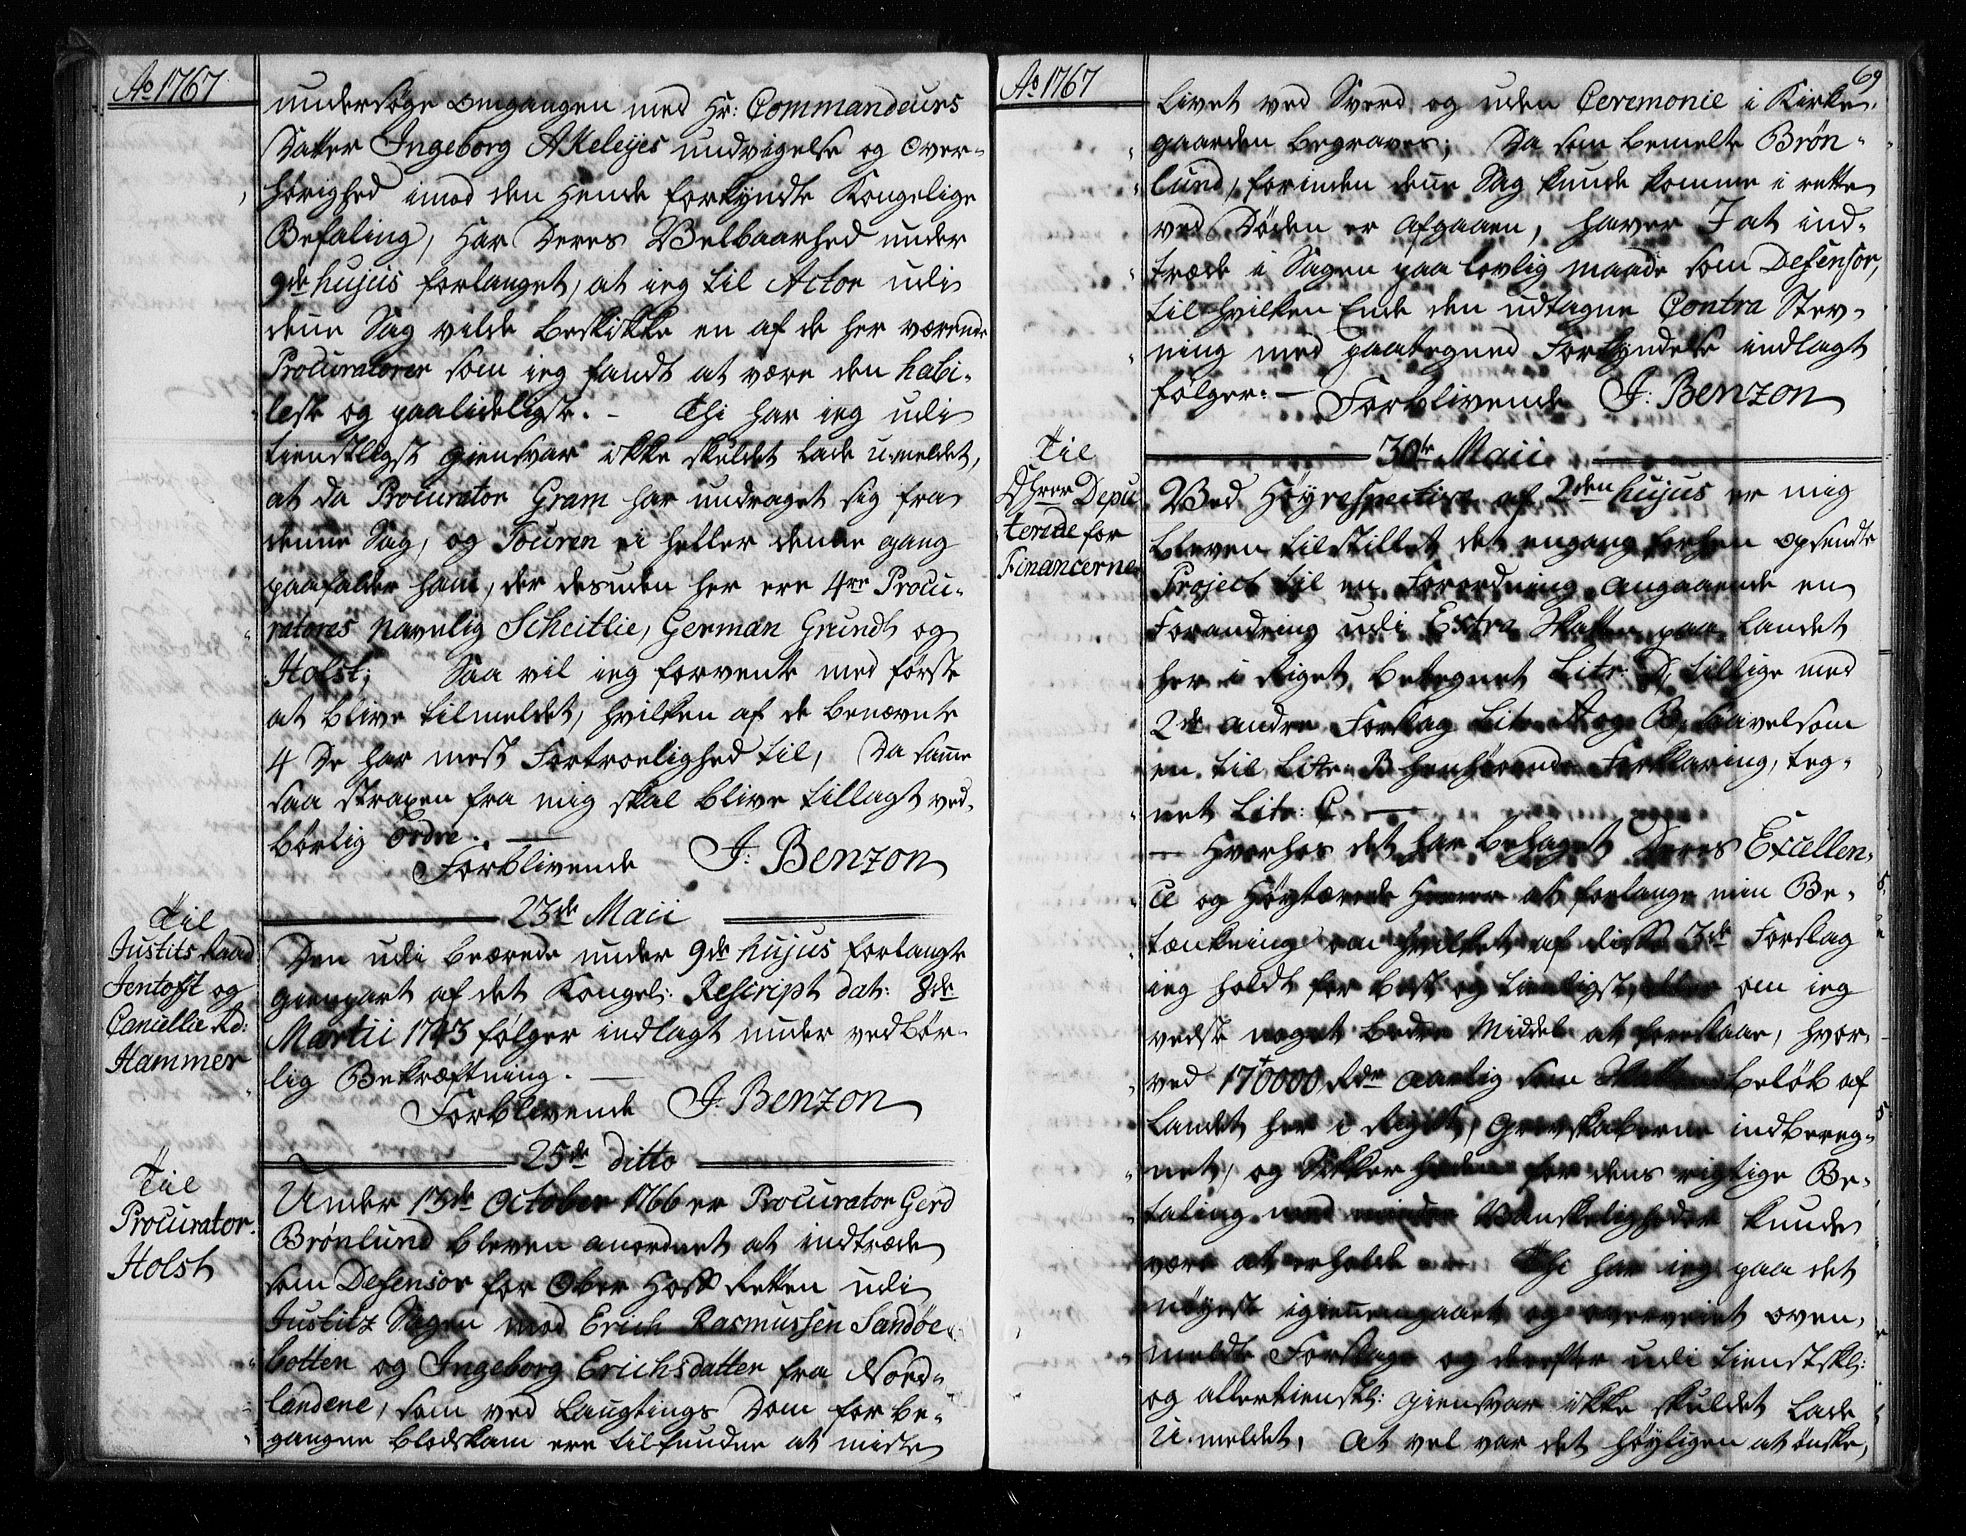 Ao 1767
undersøge omgangen med Hr: Commandeurs
Datter Ingeborg AKeleyes undvigelse og Over-
hørighed imod den Hende forkyndte Kongelige
Befaling, Har Deres Velbaarhed under
9de hujus forlanget, at ieg til Actor udi
denne Sag vilde beskikke en af de her værende
Procuratorer som ieg fandt at være den habi-
leste og paalideligste. - Thi har ieg udi
tienstligst giensvar ikke skuldet lade u-meldet,
at da Procurator Gram har undraget sig fra
denne Sag, og Touren ei heller denne gang
paafalder ham, der desuden her ere 4re Procu-
ratores navnlig Scheitlie, German Grundt og
Holst; Saa vil ieg forvente med første
at blive tilmeldet, hvilken af de benævnte
4 De har mest Fortroelighed til, Da samme
saa straxen fra mig skal blive tillagt ved-
børlig Ordre. —
Forblivende J: Benzon
23de Maii
Til
Justits Raad
Jentoft og
Cancellie Rd:
Hammer
Den udi beærede under 9de hujus forlangte
gienpart af det Kongel: Rescript dat: 8de
Martii 1743 følger indlagt under vedbør-
lig Bekræftning. —
Forblivende J. Benzon
25de ditto
Til
Procurator
Holst
Under 13de October 1766 er Procurator Gerd
Brønlund bleven anordnet at indtræde
som Defensor for Ober Hoff Retten udi
Justitz Sagen mod Erich Rasmussen Sandøe-
botten og Ingeborg Erichsdatter fra Nord-
landene, som ved Laugtings Dom for be-
gangne Blodskam ere tilfundne at miste
Ao 1767
69
Livet ved Sverd og uden Ceremonie i Kirke-
gaarden begraves; Da som bemelte Brøn-
lund, forinden denne Sag kunde komme i rette
ved Døden er afgaaen, haver I at ind-
træde i Sagen paa lovlig maade som Defensor,
til hvilken Ende den udtagne Contra Stev-
ning med paategned Forkyndelse indlagt
følger. —
Forblivende J: Benzon
30te Maii
Til
Dhrer Depu
terede for
Financerne
Ved Høyrespective af 2den hujus er mig
bleven tilstillet det engang forhen opsendte
Project til en Forordning angaaende en
Forandring udi Extra Skatten paa Landet
her i Riget, betegnet Litr: D, tillige med
2de andre Forslag Litr: A og B, saavelsom
en til Litr: B henhørende Forklaring, teg-
net Litr: C. —
— Hvorhos det har behaget Deres Excellen-
ce og Høytærede Herrer at forlange min Be-
tænkning om hvilket af disse 3de Forslag
ieg holdt for best og tienligst, eller om ieg
vedste noget bedre Middel at foreslaae, hvor-
ved 170000 Rdr aarlig som Skattens beløb af
Landet her i Riget, Grevskaberne indbereg-
net, og Sikkerheden for dens rigtige Be-
taling med mindre Vanskeligheder kunde
være at erholde — Thi har ieg paa det
nøyest igiennemgaaet og overveiet oven-
meldte Forslage og derefter udi tienstskl:
og allertienskl: giensvar ikke skuldet lade
U-meldet, At vel var det høyligen at ønske,